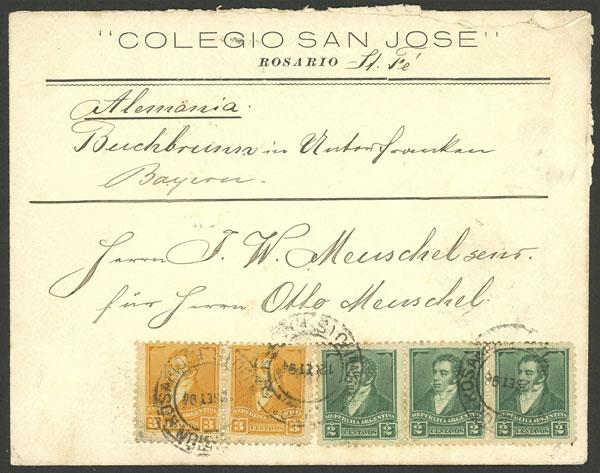 "COLEGIO SAN JOSE"
ROSARIO – St. Fé
Alemania.
Buchbrunn in Unterfranken
Bayern.
Herrn J. W. Meuschel senr.
für Herrn Otto Meuschel.
REPUBLICA ARGENTINA
3 CENTAVOS 3
REPUBLICA ARGENTINA
3 CENTAVOS 3
REPUBLICA ARGENTINA
2 CENTAVOS 2
REPUBLICA ARGENTINA
2 CENTAVOS 2
REPUBLICA ARGENTINA
2 CENTAVOS 2
ROSARIO
ROSARIO